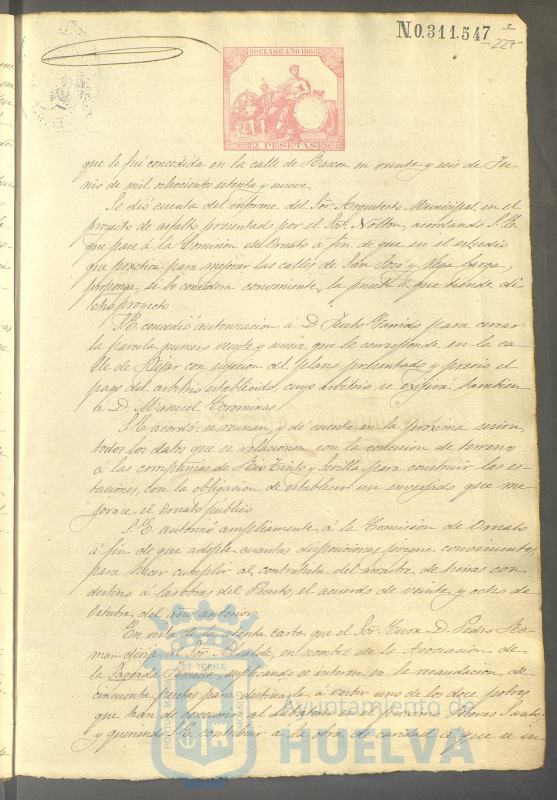 No.311.547
227
10ª CLASE AÑO 1883
12 PESETAS
que le fué concedida en la calle de Bazan en veinte y seis de Ju-
nio de mil ochocientos setenta y nueve.
Se dió cuenta del informe del Sor. Arquitecto Municipal, en el
proyecto de asfalto presentado por el Sor. Nolton, acordando S. E.
que pase á la Comision de Ornato á fin de que en el estudio
que practica para mejorar las calles de San José y Vega Larga,
proponga, si lo considera conveniente, la prueba á que tiende di-
cho proyecto
S. E. concedió autorizacion á D. Justo Garrido para cercar
la parcela numero veinte y nueve que le corresponde en la ca-
lle de Bejar con sujecion al plano presentado y previo el
pago del arbitrio establecido, cuyo arbitrio se exigirá tambien
á D. Manuel Corominas
S. E. acordó se reunan, y dé cuenta en la próxima sesion,
todos los datos que se relacionan con la concesion de terreno
á las compañias de Rio Tinto y Sevilla para construir las es-
taciones, con la obligacion de establecer un enverjado que me-
jorase el ornato público
S. E. autorizó ampliamente á la Comision de Ornato
á fin de que adopte cuantas disposiciones juzgue convenientes
para hacer cumplir al contratista del arrastre de tierras con
destino á las obras del Puerto, el acuerdo de veinte y ocho de
Octubre del año anterior
En vista de la atenta carta que el Sor. Cura D. Pedro Ro-
man dirije al Sor. Alcalde, en nombre de la Asociacion de
la Sagrada Familia, suplicando se interese en la recaudacion de
cincuenta pesetas para destinarla á vestir uno de los doce pobres
que han de concurrir al Labatorio en el próximo Jueves Santo,
y queriendo S. E. contribuir á la obra de caridad á que se in
Ayuntamiento de
HUELVA